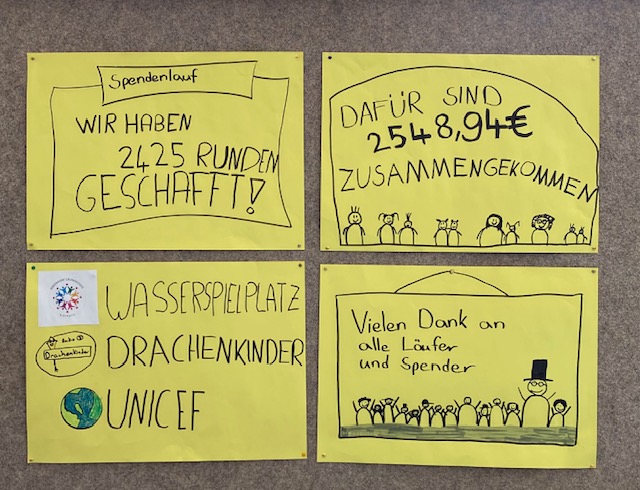 Spendenlauf
WIR HABEN
2425 RUNDEN
GESCHAFFT!
DAFÜR SIND
2548,94€
ZUSAMMENGEKOMMEN
WASSERSPIELPLATZ
Drachenkinder
DRACHENKINDER
UNICEF
Vielen Dank an
alle Läufer
und Spender